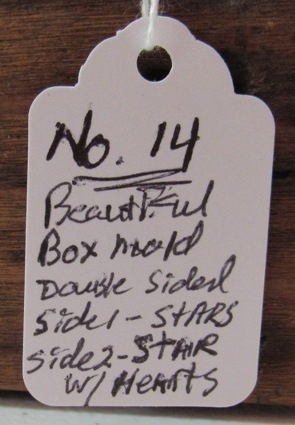 No. 14
Beautiful
Box mold
Double Sided
Side1 - STARS
Side2 - STAR
W/ Hearts